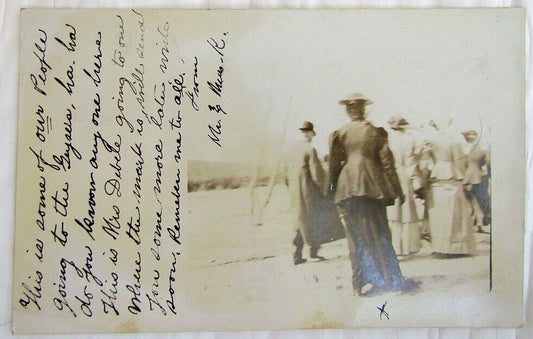 This is some of our People
going to the Gysers, ha. ha
do you know any one here
This is Mrs Debele going to one
Where the mark is will send
You some more later write
soon, Remember me to all.
From
Mr & Mrs R.
x